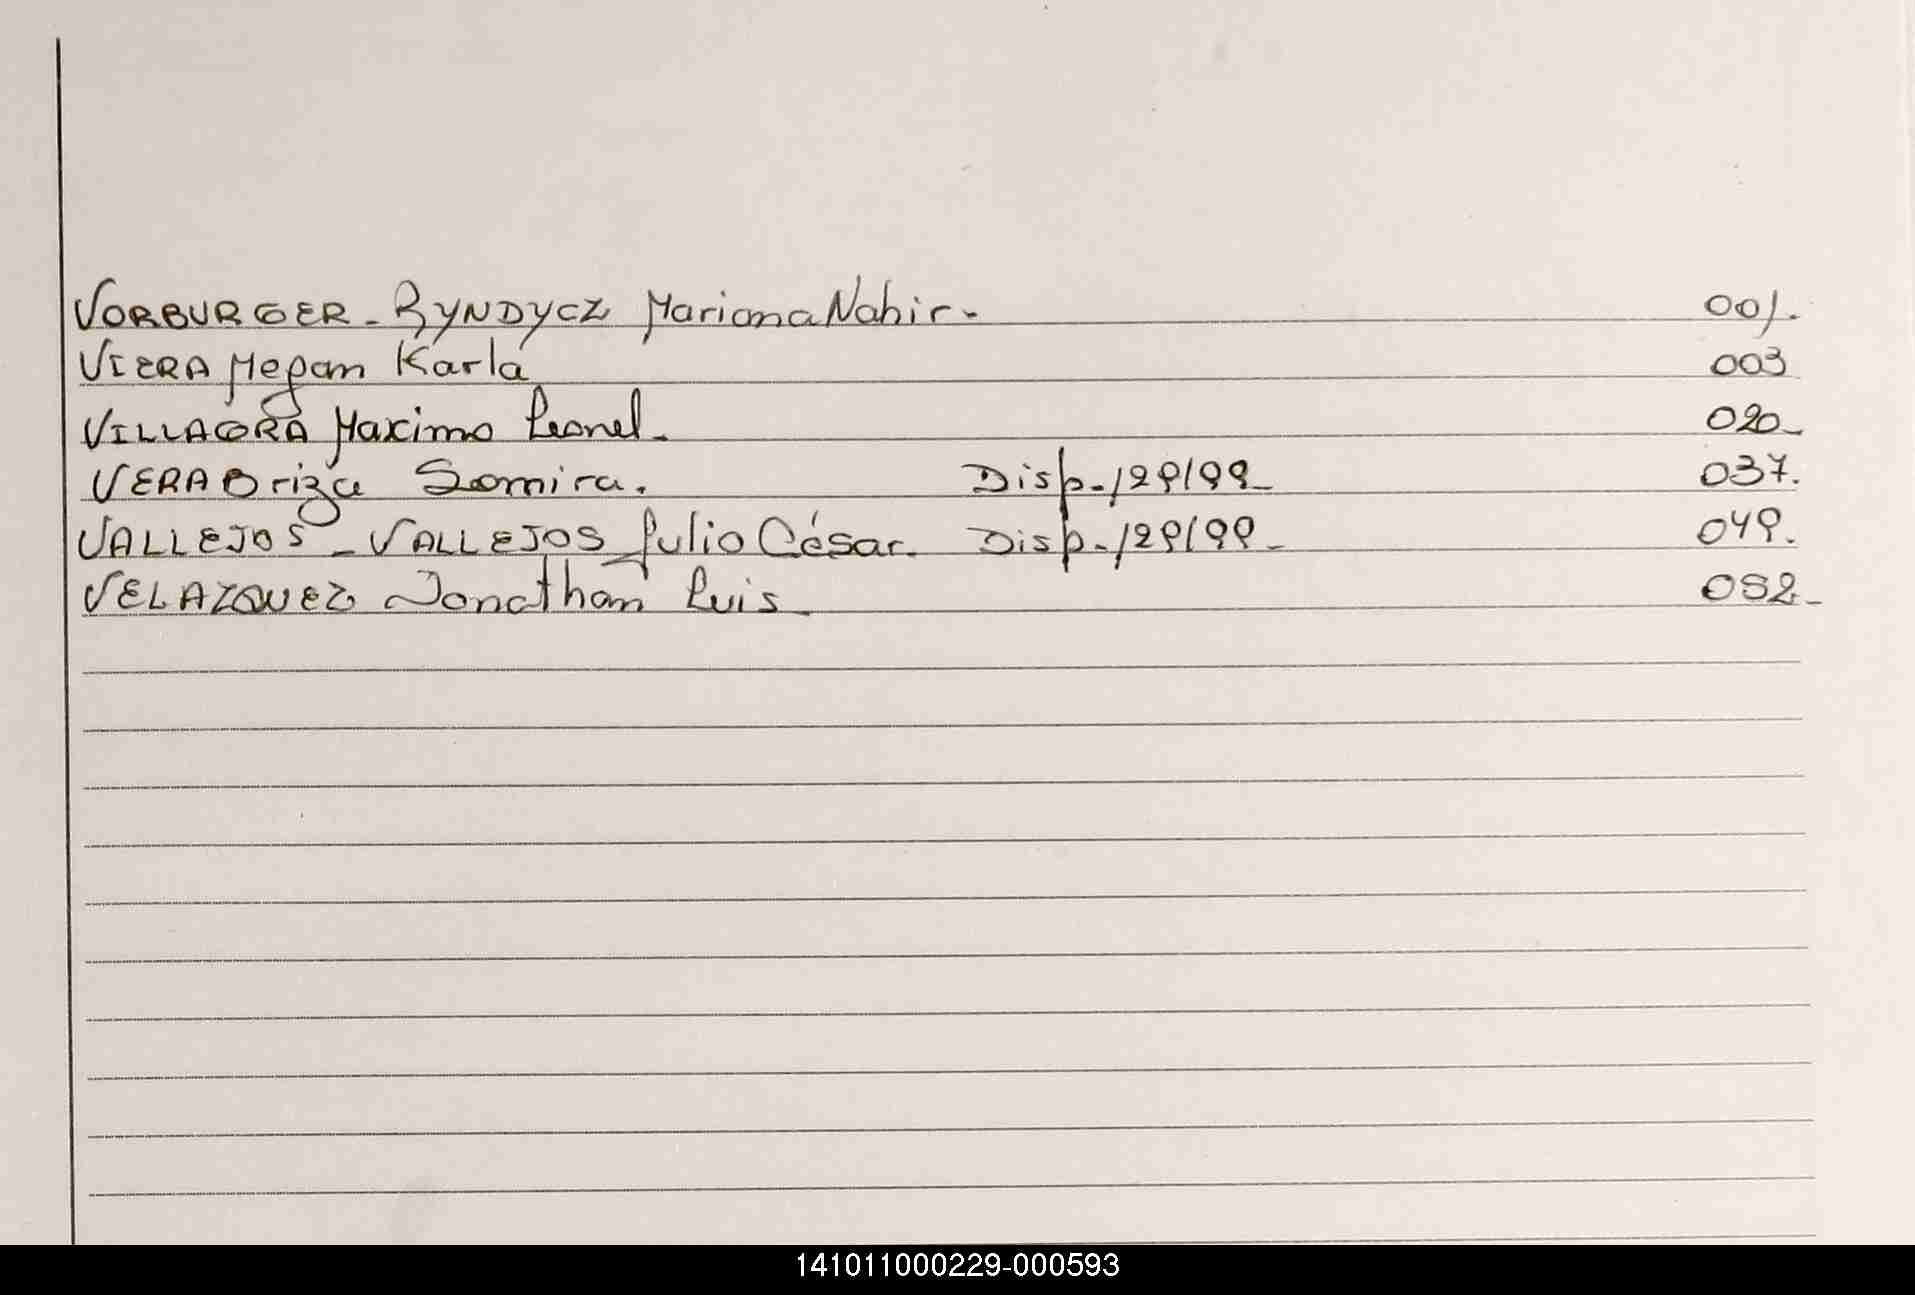 VORBURGER - RYNDYCZ Mariana Nahir - 001.
VIERA Megan Karla 003
VILLAGRA Maximo Leonel - 020 -
VERA Briza Samira. Disp. 129/99 - 037.
VALLEJOS - VALLEJOS Julio César. Disp. 129/99 - 049.
VELAZQUEZ Jonathan Luis - 052 -
141011000229-000593